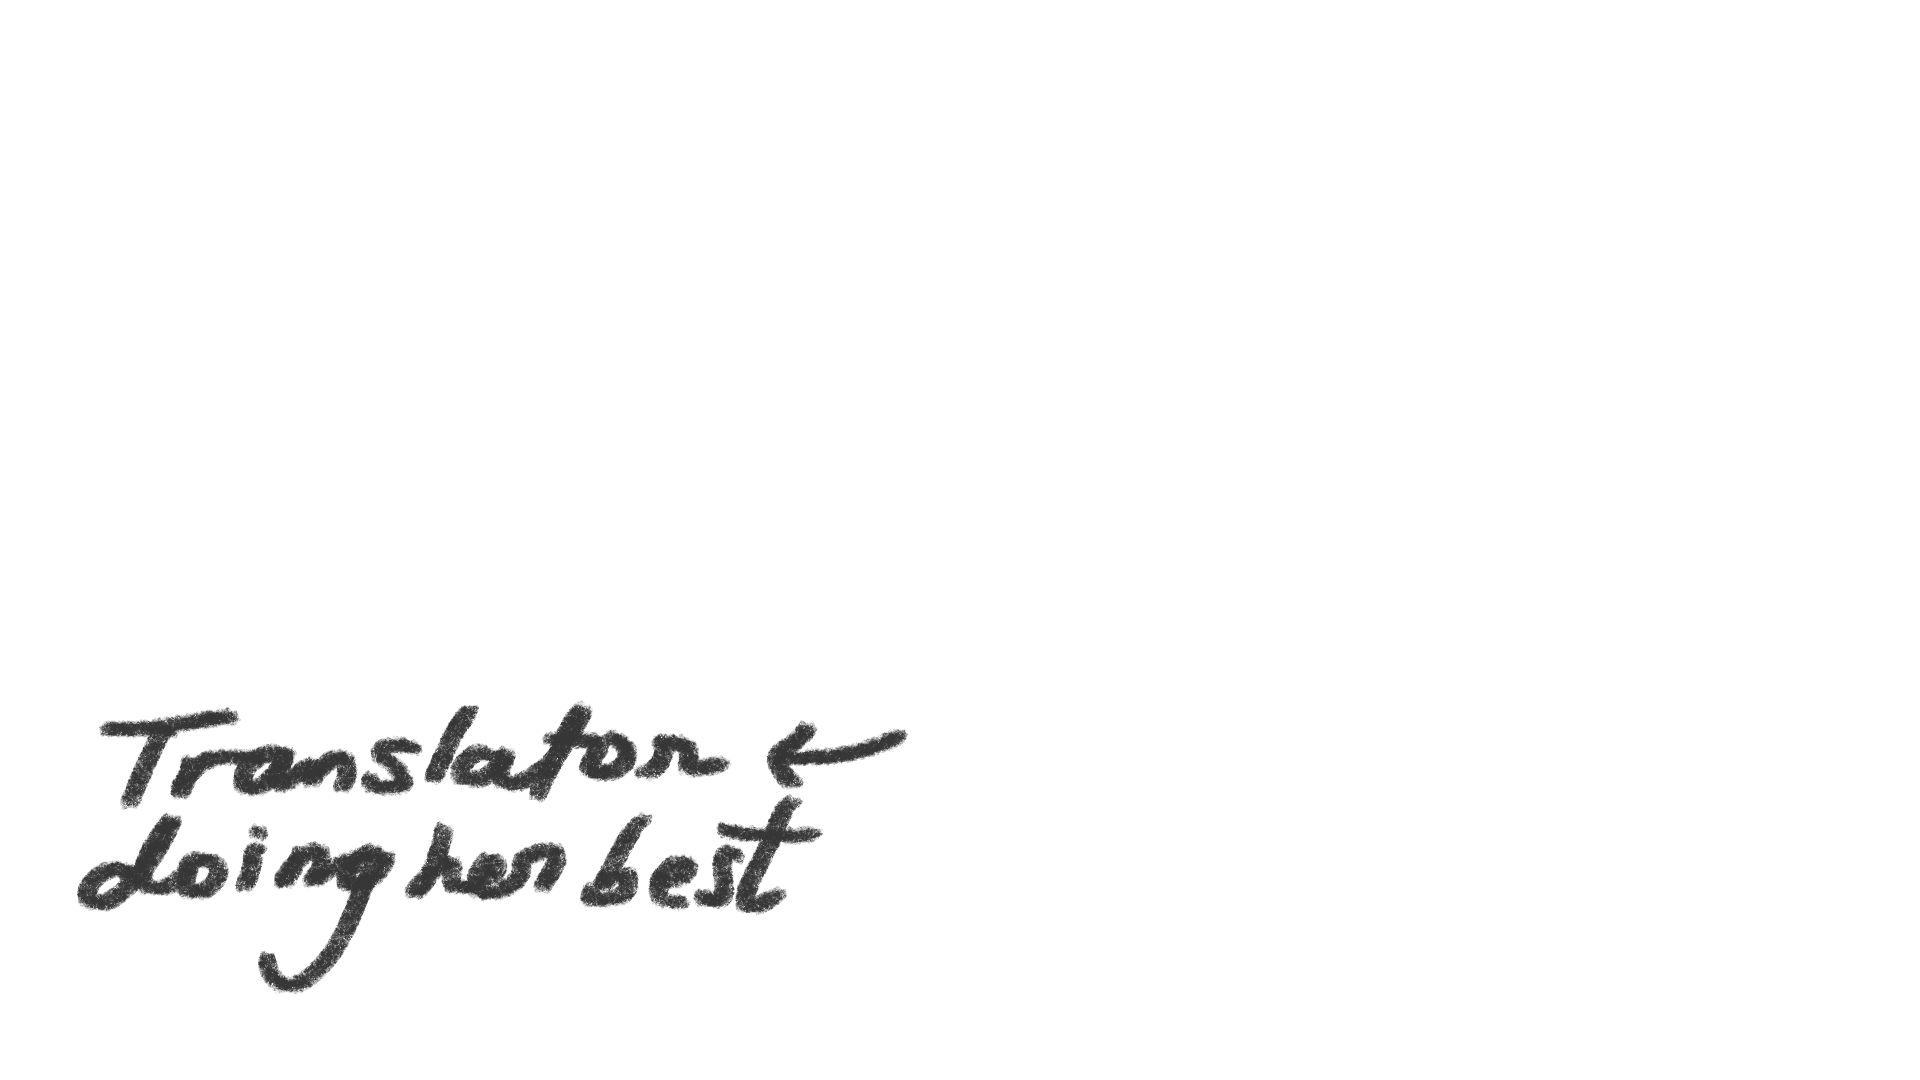 Translator ←
doing her best